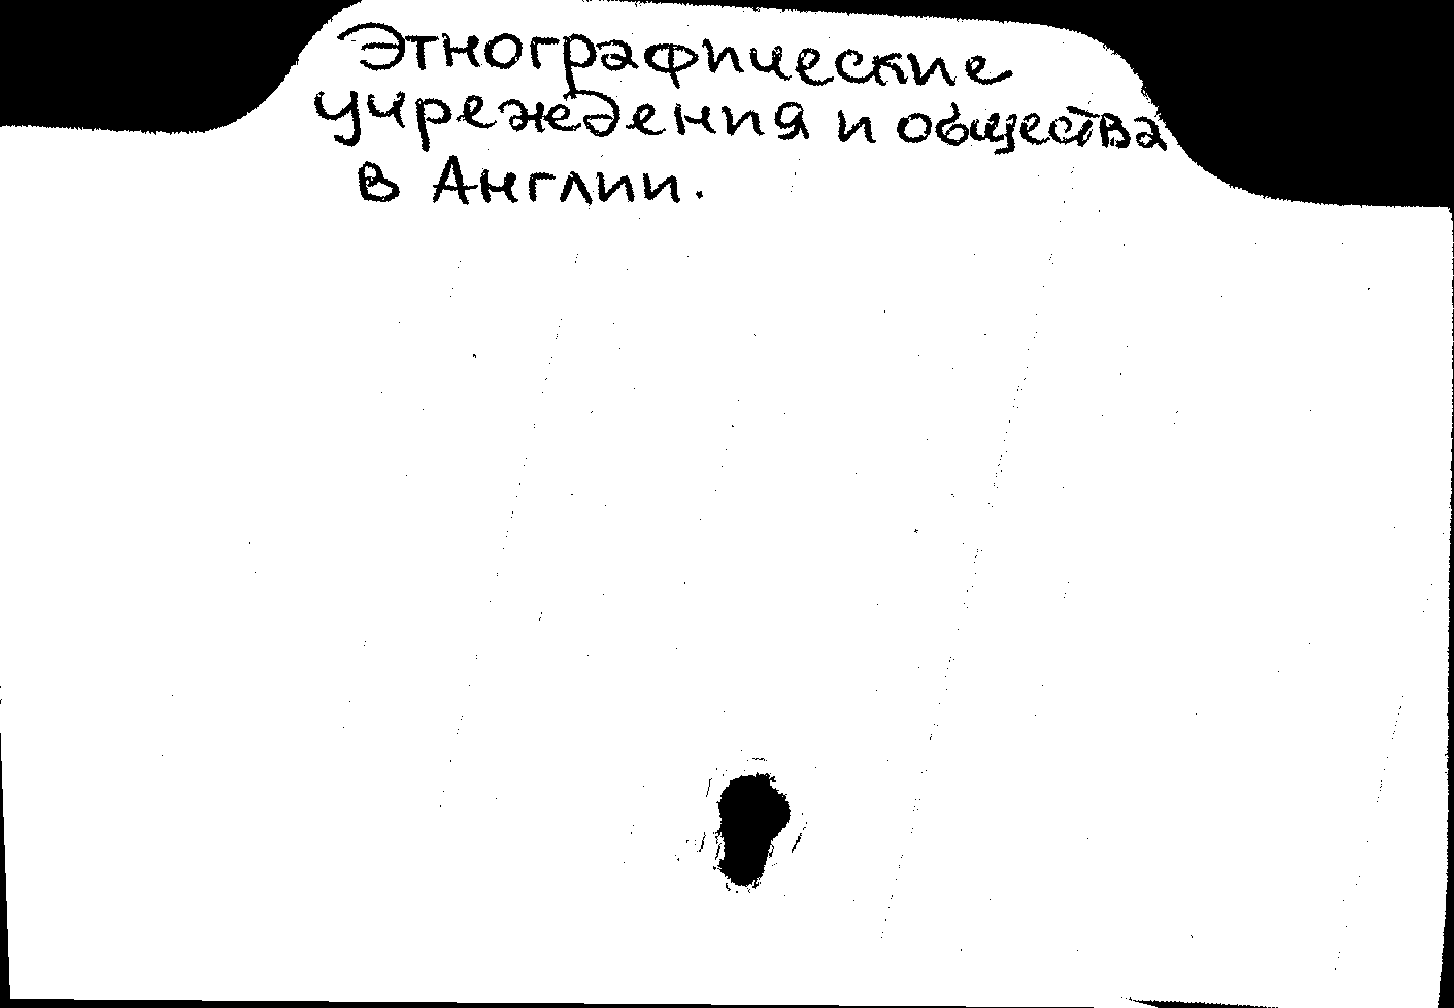 Этнографические
учреждения и общества
в Англии.